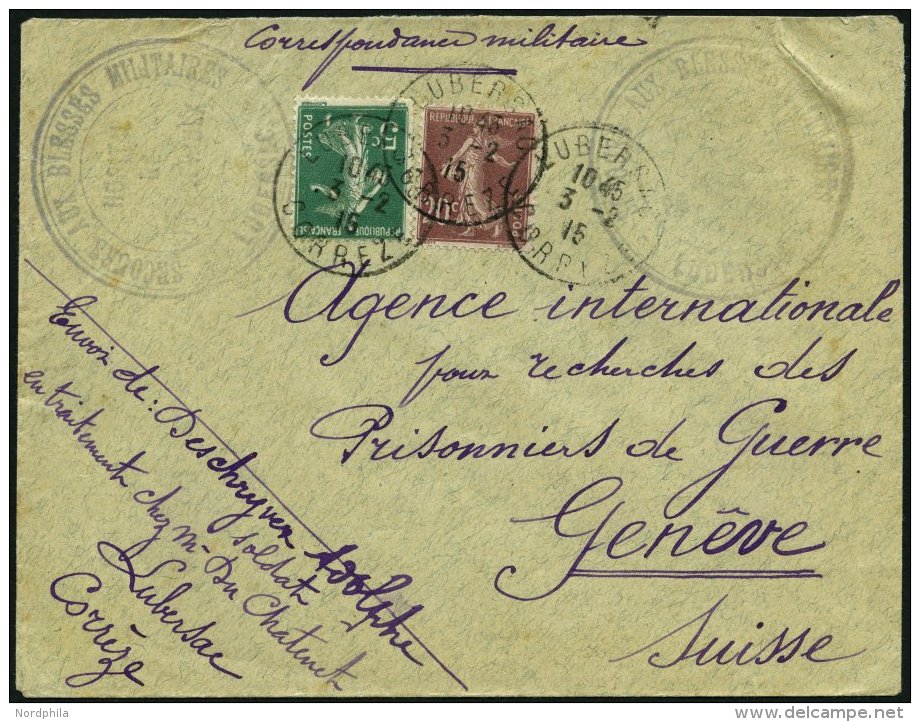 Correspondance militaire
SECOURS AUX BLESSÉS MILITAIRES
LUBERSAC
AUX BLESSÉS
5c
POSTES
REPUBLIQUE FRANÇAISE
REPUBLIQUE FRANÇAISE
10c
POSTES
LUBERSAC
10 45
3 -2
15
CORREZE
LUBERSAC
10 45
3 -2
15
CORREZE
LUBERSAC
10 45
3 -2
15
CORREZE
Agence internationale
pour recherches des
Prisonniers de Guerre
Genêve
Suisse
Envoi de: Deschryver Adolphe
soldat
en traitement chez M. Du Chatenet
Lubersac
Corrèze
Nordphila
delcampe.net